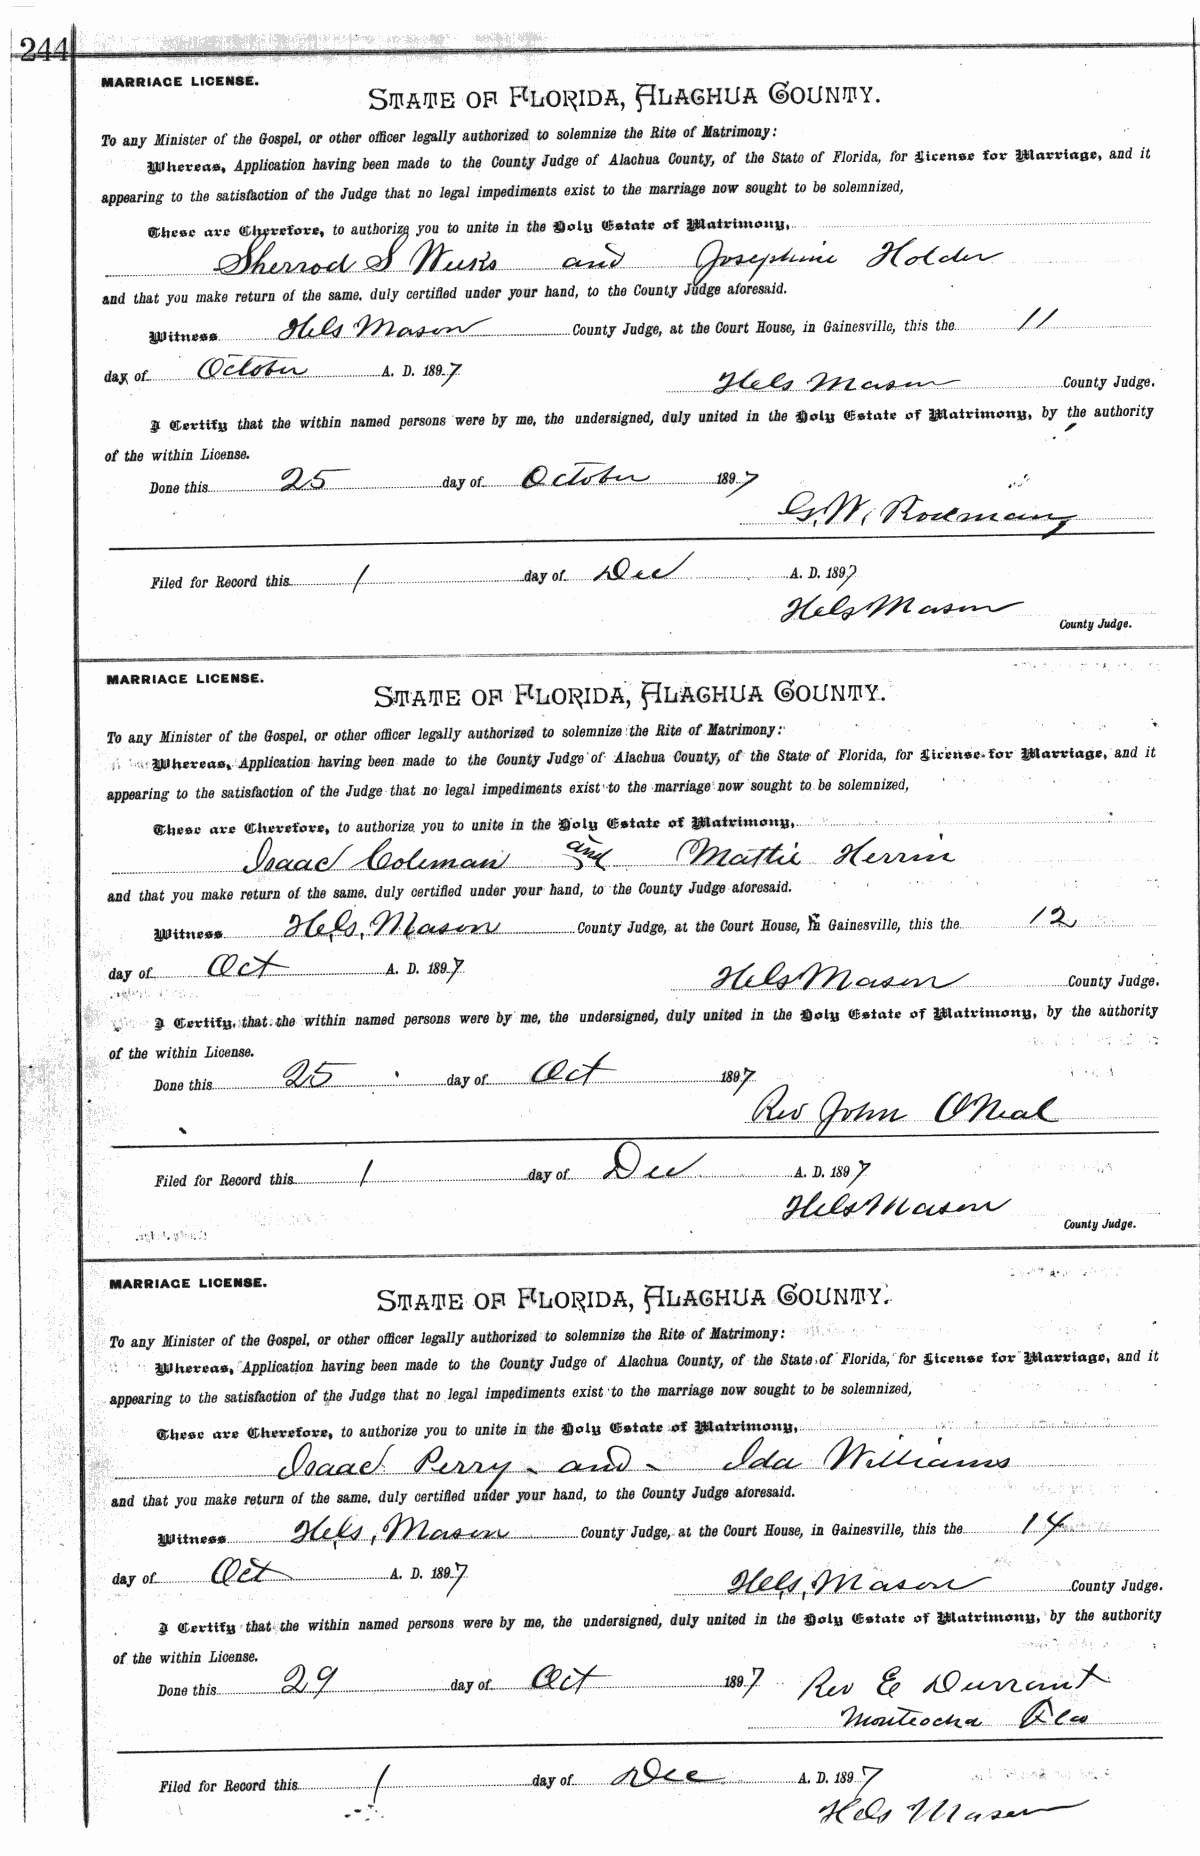 244
MARRIAGE LICENSE.
STATE OF FLORIDA, ALACHUA COUNTY.
To any Minister of the Gospel, or other officer legally authorized to solemnize the Rite of Matrimony:
Whereas, Application having been made to the County Judge of Alachua County, of the State of Florida, for License for Marriage, and it
appearing to the satisfaction of the Judge that no legal impediments exist to the marriage now sought to be solemnized,
These are Therefore, to authorize you to unite in the Holy Estate of Matrimony,
Sherrod S Weeks and Josephine Holder
and that you make return of the same, duly certified under your hand, to the County Judge aforesaid.
Witness Hels Mason County Judge, at the Court House, in Gainesville, this the 11
day of October A. D. 1897
Hels Mason County Judge.
I Certify that the within named persons were by me, the undersigned, duly united in the Holy Estate of Matrimony, by the authority
of the within License.
Done this 25 day of October 1897
G. W. Rodeman
Filed for Record this 1 day of Dec A. D. 1897
Hels Mason
County Judge.
MARRIAGE LICENSE.
STATE OF FLORIDA, ALACHUA COUNTY.
To any Minister of the Gospel, or other officer legally authorized to solemnize the Rite of Matrimony:
Whereas, Application having been made to the County Judge of Alachua County, of the State of Florida, for License for Marriage, and it
appearing to the satisfaction of the Judge that no legal impediments exist to the marriage now sought to be solemnized,
These are Therefore, to authorize you to unite in the Holy Estate of Matrimony,
Isaac Coleman and Mattie Herrin
and that you make return of the same, duly certified under your hand, to the County Judge aforesaid.
Witness Hels, Mason County Judge, at the Court House, in Gainesville, this the 12
day of Oct A. D. 1897
Hels Mason County Judge.
I Certify, that the within named persons were by me, the undersigned, duly united in the Holy Estate of Matrimony, by the authority
of the within License.
Done this 25 day of Oct 1897
Rev John ONeal
Filed for Record this 1 day of Dec A. D. 1897
Hels Mason
County Judge.
MARRIAGE LICENSE.
STATE OF FLORIDA, ALACHUA COUNTY.
To any Minister of the Gospel, or other officer legally authorized to solemnize the Rite of Matrimony:
Whereas, Application having been made to the County Judge of Alachua County, of the State of Florida, for License for Marriage, and it
appearing to the satisfaction of the Judge that no legal impediments exist to the marriage now sought to be solemnized,
These are Therefore, to authorize you to unite in the Holy Estate of Matrimony,
Isaac Perry - and - Ida Williams
and that you make return of the same, duly certified under your hand, to the County Judge aforesaid.
Witness Hels, Mason County Judge, at the Court House, in Gainesville, this the 14
day of Oct A. D. 1897
Hels, Mason County Judge.
I Certify that the within named persons were by me, the undersigned, duly united in the Holy Estate of Matrimony, by the authority
of the within License.
Done this 29 day of Oct 1897 Rev E Durrant
Monteocha Fla
Filed for Record this 1 day of Dec A. D. 1897
Hels Mason